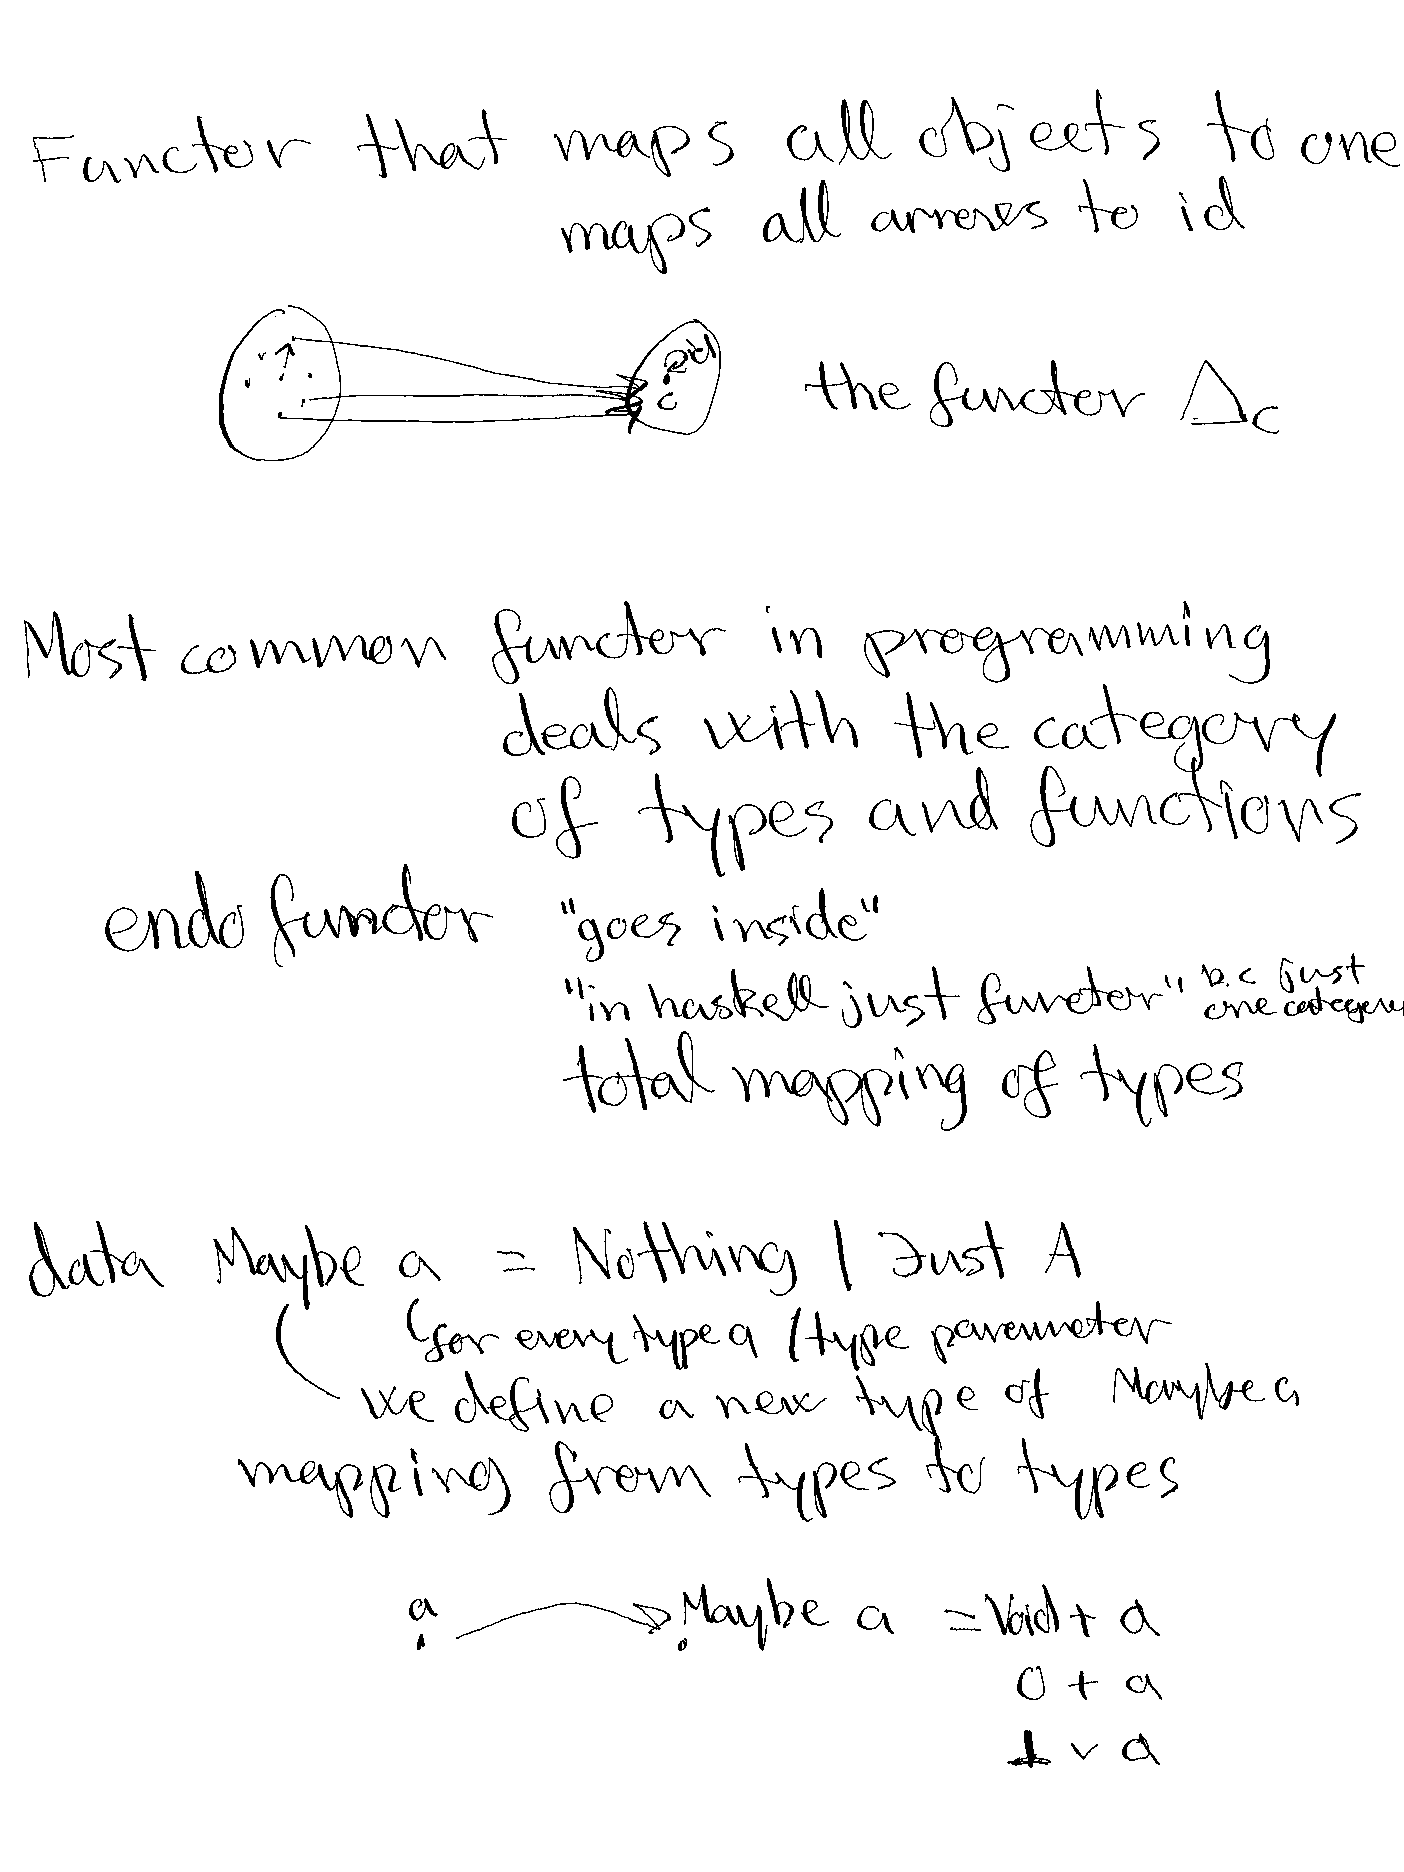 Functor that maps all objects to one
maps all arrows to id
id
c
the functor Δc
Most common functor in programming
deals with the category
of types and functions
endo functor "goes inside"
"in haskell just functor" b.c just
one category
total mapping of types
data Maybe a = Nothing | Just A
for every type a / type parameter
we define a new type of Maybe a
mapping from types to types
a Maybe a = Void + a
0 + a
⊥ ∨ a